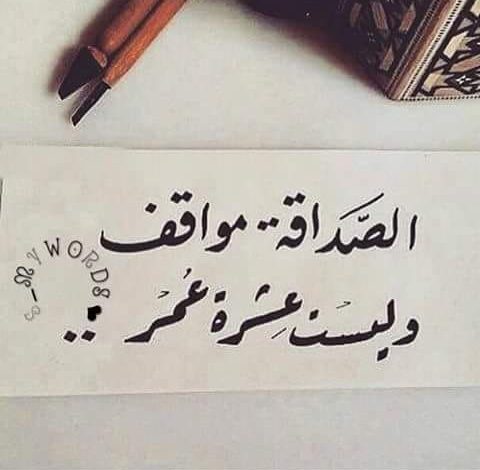 الصَّداقة.. مواقف
وليست عِشرة عُمر ..
MY WORDS